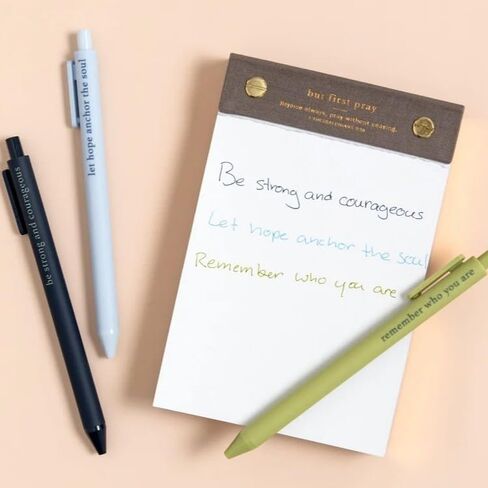 let hope anchor the soul
be strong and courageous
but first pray
Rejoice always, pray without ceasing.
Be strong and courageous
Let hope anchor the soul
Remember who you are
remember who you are